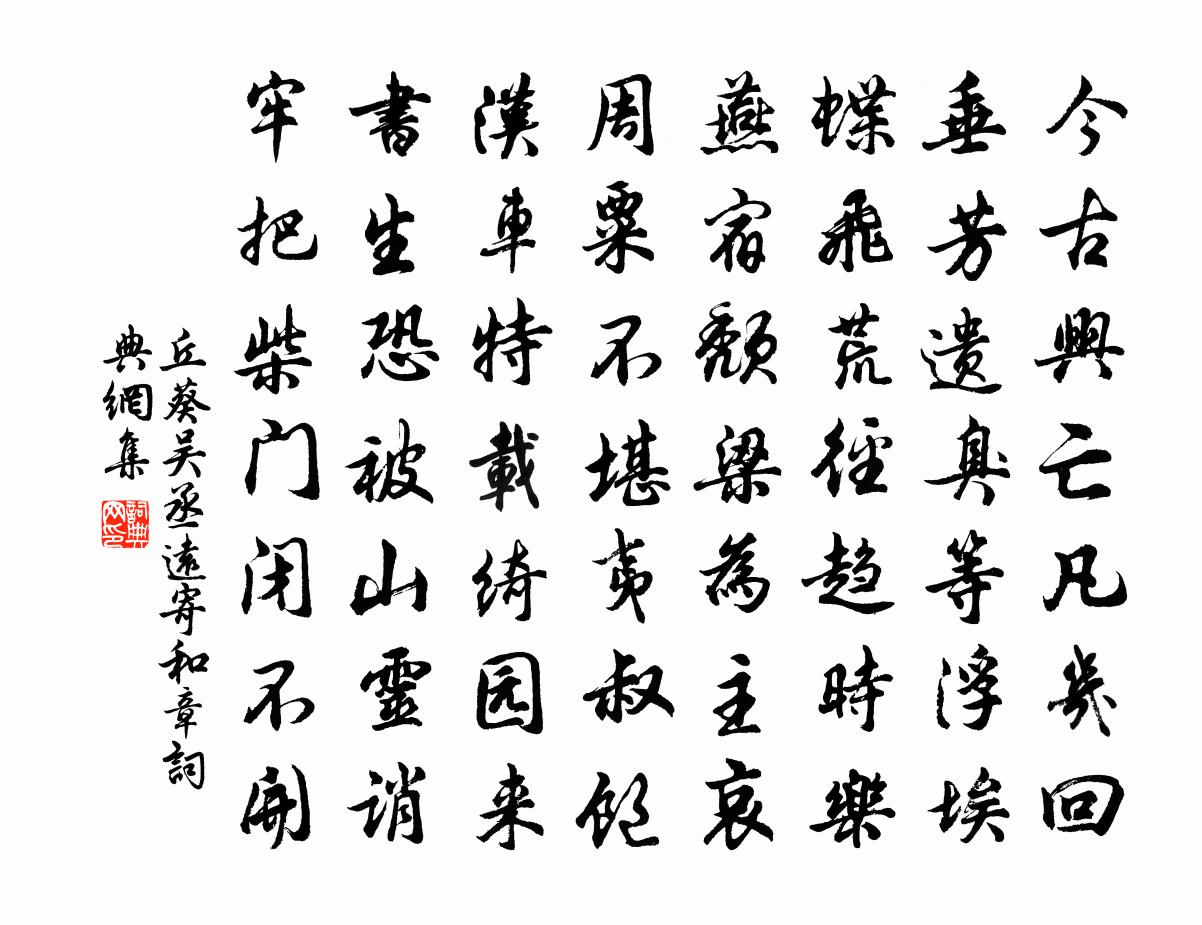 今古興亡凡幾回
垂芳遺臭等浮埃
蝶飛荒徑趋時樂
燕宿頹梁為主哀
周粟不堪夷叔飽
漢車特載綺园来
書生恐被山靈誚
牢把柴门闭不開
丘葵吴丞遠寄和章詞
典網集
詞典
网印